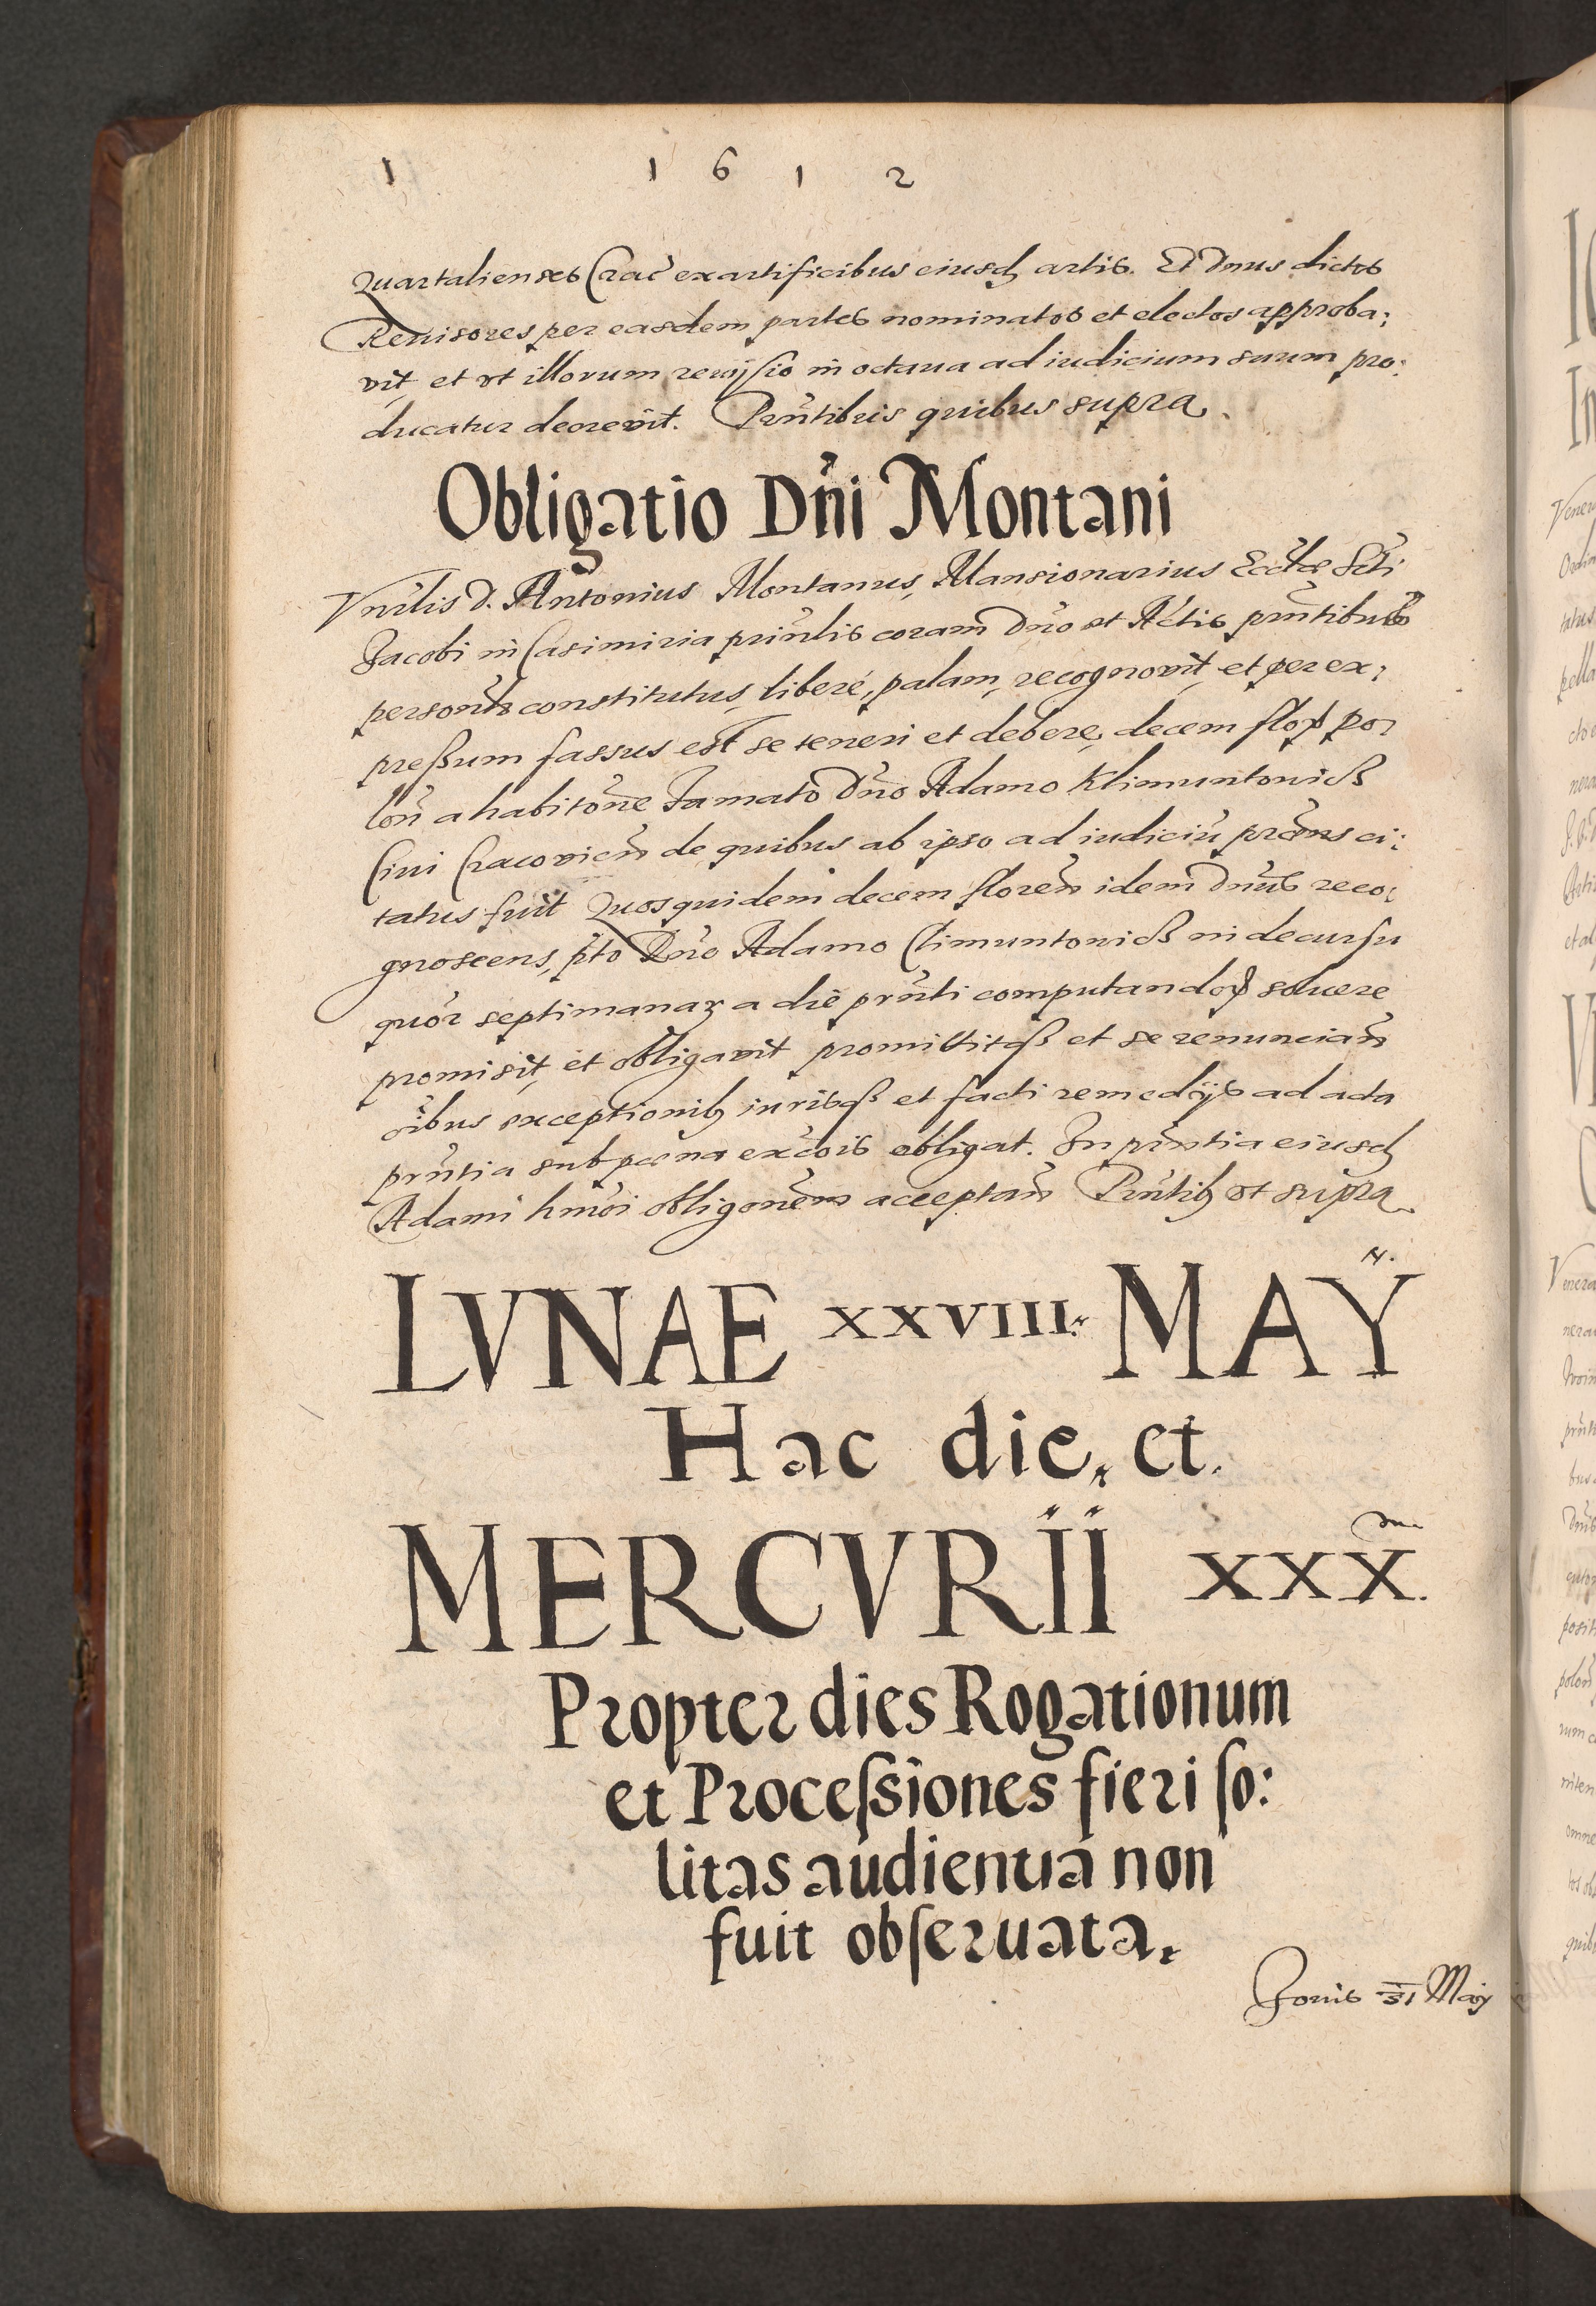 1 1 6 1 2
Quartalienses Crac̄ ex artificibus eiusd artis. Et Dnus dictos
Reuisores per easdem partes nominatos et electos approba;
vit, et vt illorum reuisio in octaua ad iudicium suum pro:
ducatur decrevit. Prn̄tibus quibus supra.
Obligatio Dn̄i Montani
Vn̄rlis D. Antonius Montanus, Mansionarius Eccl̄æ Scti
Jacobi in Casimiria prin̄lis coram Dn̄o et Actis prn̄tibus
personlr constitutus, liberé, palam, recognovit, et per ex;
preßum fassus est se teneri et debere, decem flor po;
lon̄ a habitōne famato Dn̄o Adamo Klimuntowicß
Ciui Cracovien̄ de quibus ab ipso ad iudiciū prn̄s ci:
tatus fuit Quos quidem decem floren̄ idem Dn̄us reco:
gnoscens, pt̄o Dn̄o Adamo Climuntowicß in decursu
quor septimanar a die prn̄ti computandor soluere
promisit, et obligavit promittitqß et se renuncian̄
oībus exceptionib iurisqß et facti remedijs ad acta
prn̄tia sub pœna exc̄ois obligat. In prn̄tia eiusd
Adami hmōi obligonēm acceptan̄ Prn̄tib vt supra
LVNAE XXVIII. MAŸ
Hac die, et.
MERCVRÏÏ XXX.
Propter dies Rogationum
et Proceſsiones fieri ſo:
litas audientia non
fuit obſeruata.
Jouis 31 Maij